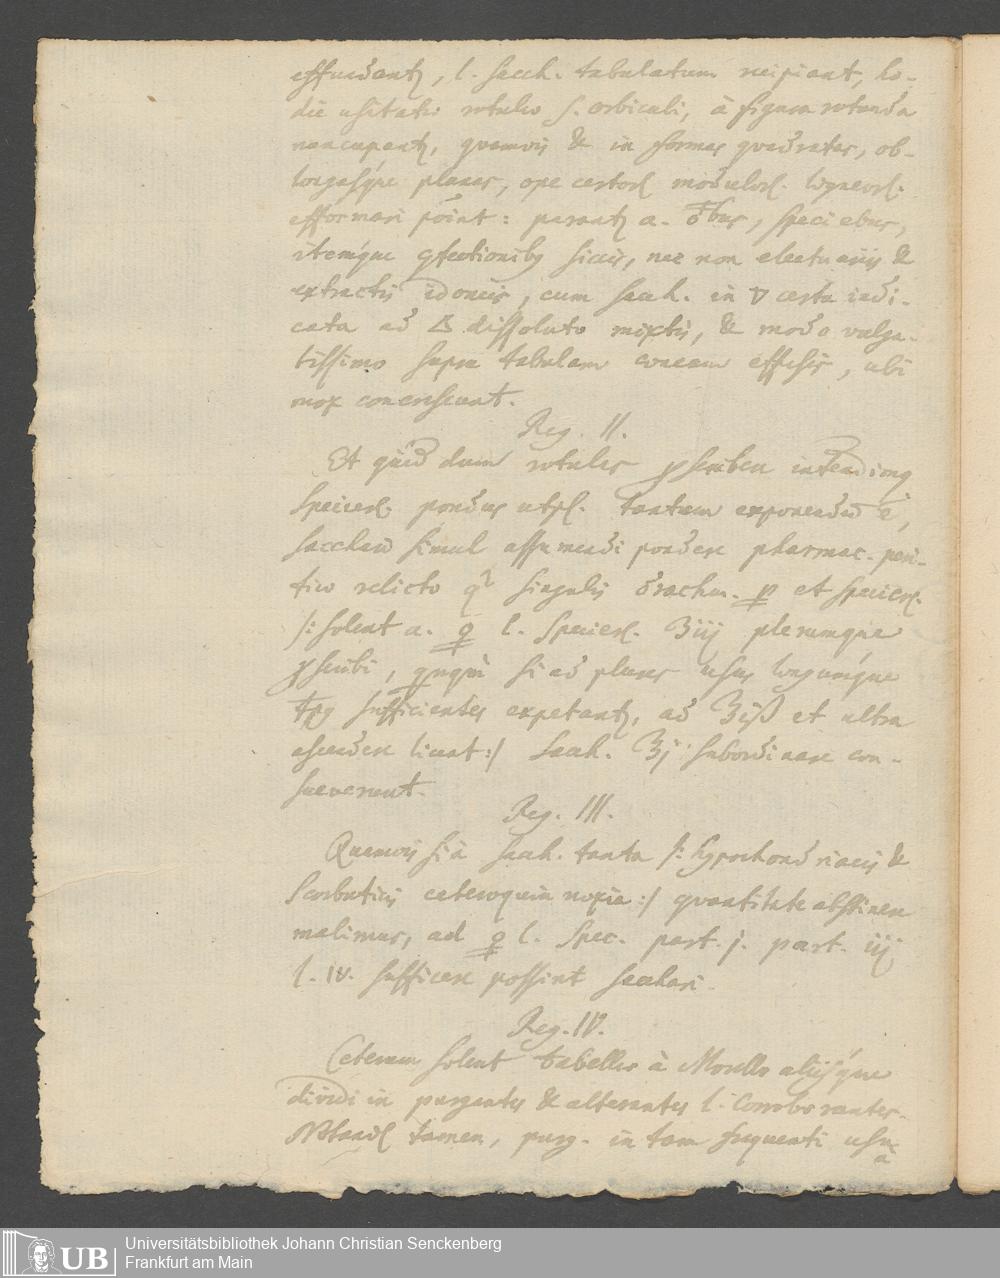 effundantz, l. sacch. tabulatum recipiant, ho-
die usitatis rotulis s. orbiculi, à figura rotunda
nuncupantz, quamvis & in formas quadratas, ob-
longasque planas, ope certorl modulorl. ligneorl.
efformari point: parantz a. bus, speciebus,
itemque cfectionibq siccis, nec non electuariis &
extractis idoneis, cum sacch. in ∇ certa indi-
cata ad Δ dissoluto mixtis, & modo vulga-
tissimo supra tabulam effusis, ubi
mox concrescunt.
Reg. II.
Et quid dum rotulas
Specierl. pondus tantum exponendū è,
sacchari simul assumendi pondere pharmac. peri-
tiæ relicto qr singulis drachm. et specierl.
/: solent a. l. Specierl. ʒiij plerumque
scribi, si ad plures usus longumque
sufficientes expetantz, ad ʒijß et ultra
ascendere liceat :/ Sacch. ℥j subordinare con-
sueverunt.
Reg. III.
Quamvis si à sacch. tanta /: hypochondriacis &
Scorbuticis ceteroquin noxia :/ quantitate abstinere
malimus, ad l. Spec. part. j. part. iij
l. IV. sufficere possint sacchari.
Reg. IV.
Ceterum solent tabellæ à Morello aliisque
dividi in purgantes & alterantes l. Corroborantes.
Notandl tamen, purg. in tam frequenti usu
à
Universitätsbibliothek Johann Christian Senckenberg
UB Frankfurt am Main